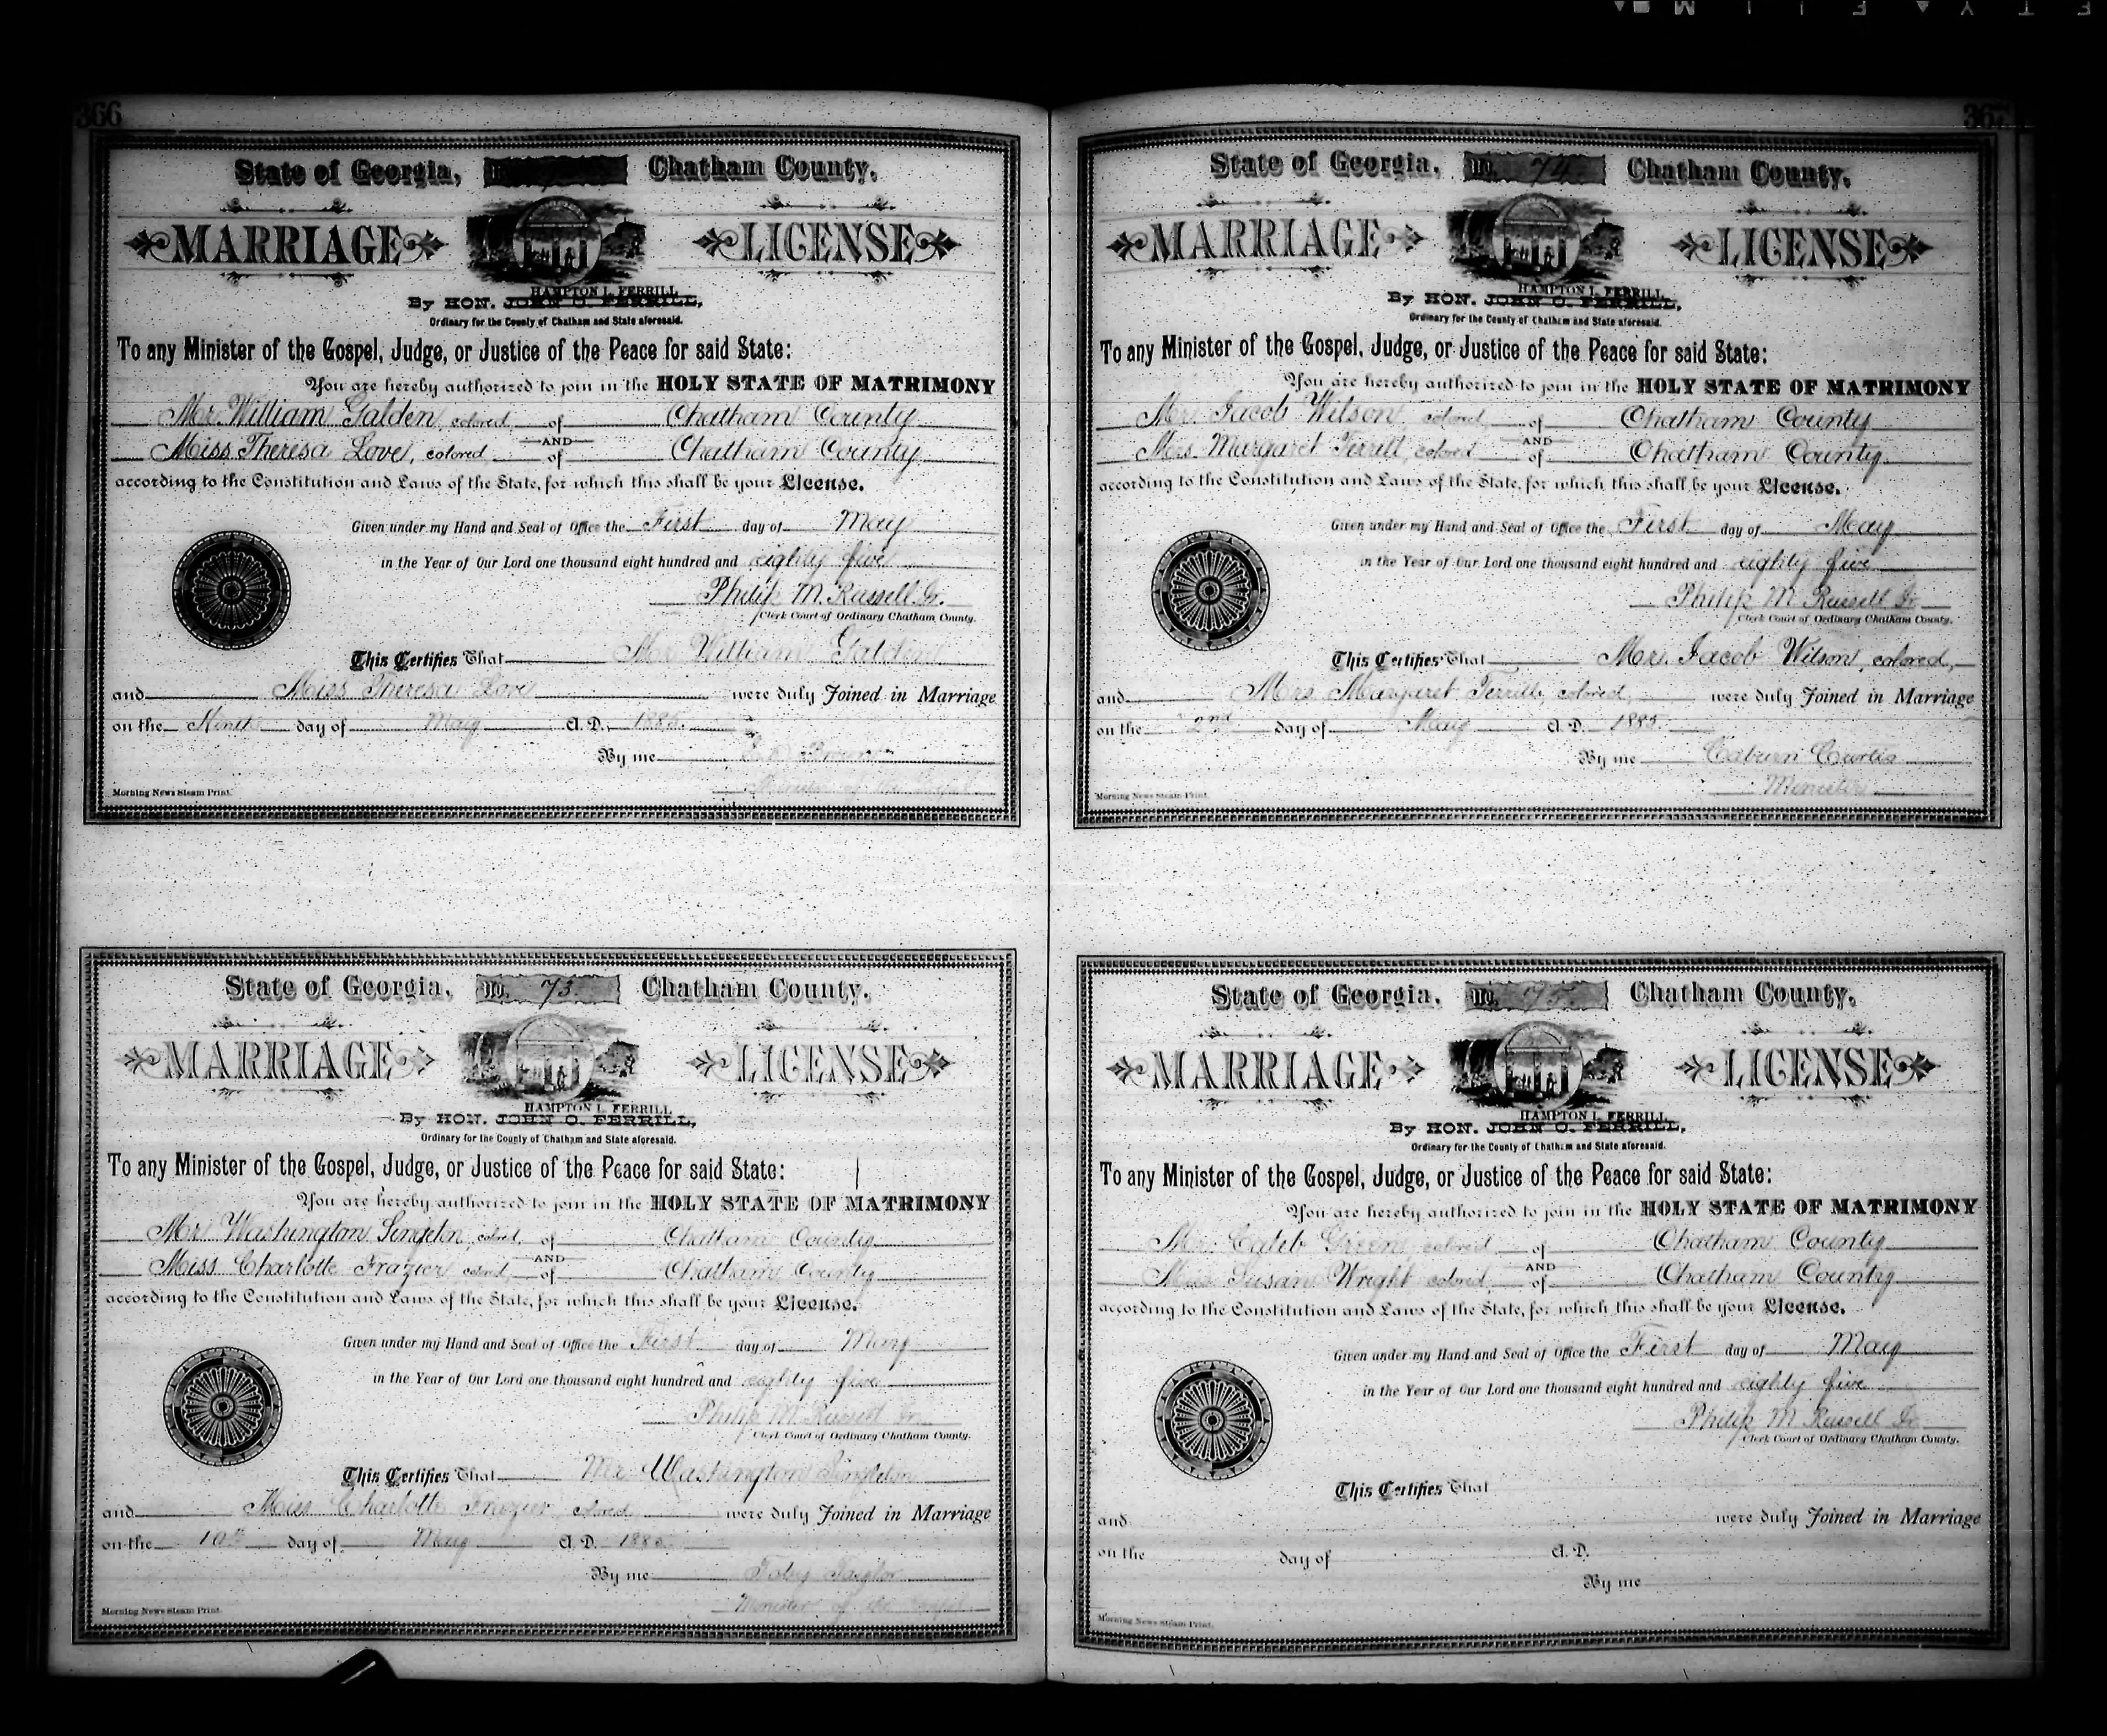 366
State of Georgia, Chatham County.
MARRIAGE LICENSE
HAMPTON L. FERRILL
By HON. JOHN O. FERRILL,
Ordinary for the County of Chatham and State aforesaid.
To any Minister of the Gospel, Judge, or Justice of the Peace for said State:
You are hereby authorized to join in the HOLY STATE OF MATRIMONY
Mr. William Galden, colored of Chatham County
AND
Miss Theresa Love, colored of Chatham County
according to the Constitution and Laws of the State, for which this shall be your License.
Given under my Hand and Seal of Office the First day of May
in the Year of Our Lord one thousand eight hundred and eighty five
Philip M. Russell Jr.
Clerk Court of Ordinary Chatham County.
This Certifies That Mr William Galden
and Miss Theresa Love were duly Joined in Marriage
on the Ninth day of May A. D. 1885.
By me
Morning News Steam Print.
State of Georgia, No. 73. Chatham County.
MARRIAGE LICENSE
HAMPTON L. FERRILL
By HON. JOHN O. FERRILL,
Ordinary for the County of Chatham and State aforesaid.
To any Minister of the Gospel, Judge, or Justice of the Peace for said State:
You are hereby authorized to join in the HOLY STATE OF MATRIMONY
Mr. Washington Singleton, colored, of Chatham County
AND
Miss Charlotte Frazier colored, of Chatham County
according to the Constitution and Laws of the State, for which this shall be your License.
Given under my Hand and Seal of Office the First day of May
in the Year of Our Lord one thousand eight hundred and eighty five
Philip M. Russell Jr.
Clerk Court of Ordinary Chatham County.
This Certifies That Mr Washington Singleton
and Miss Charlotte Frazier colored were duly Joined in Marriage
on the 10th day of May A. D. 1885.
By me Toby Taylor
Minister of the Gospel
Morning News Steam Print.
367
State of Georgia, No. 74. Chatham County.
MARRIAGE LICENSE
HAMPTON L. FERRILL
By HON. JOHN O. FERRILL,
Ordinary for the County of Chatham and State aforesaid.
To any Minister of the Gospel, Judge, or Justice of the Peace for said State:
You are hereby authorized to join in the HOLY STATE OF MATRIMONY
Mr. Jacob Wilson, colored, of Chatham County
AND
Mrs. Margaret Terrill, colored of Chatham County.
according to the Constitution and Laws of the State, for which this shall be your License.
Given under my Hand and Seal of Office the First day of May
in the Year of Our Lord one thousand eight hundred and eighty five
Philip M Russell Jr
Clerk Court of Ordinary Chatham County.
This Certifies That Mr. Jacob Wilson, colored,
and Mrs Margaret Terrill, colored, were duly Joined in Marriage
on the 2nd day of May A. D. 1885.
By me Coburn Curtis
Minister
Morning News Steam Print.
State of Georgia, No. 75. Chatham County.
MARRIAGE LICENSE
HAMPTON L. FERRILL
By HON. JOHN O. FERRILL,
Ordinary for the County of Chatham and State aforesaid.
To any Minister of the Gospel, Judge, or Justice of the Peace for said State:
You are hereby authorized to join in the HOLY STATE OF MATRIMONY
Mr. Caleb Green colored of Chatham County
AND
Susan Wright colored, of Chatham County
according to the Constitution and Laws of the State, for which this shall be your License.
Given under my Hand and Seal of Office the First day of May
in the Year of Our Lord one thousand eight hundred and eighty five
Philip M Russell Jr
Clerk Court of Ordinary Chatham County.
This Certifies That
and were duly Joined in Marriage
on the day of A. D.
By me
Morning News Steam Print.